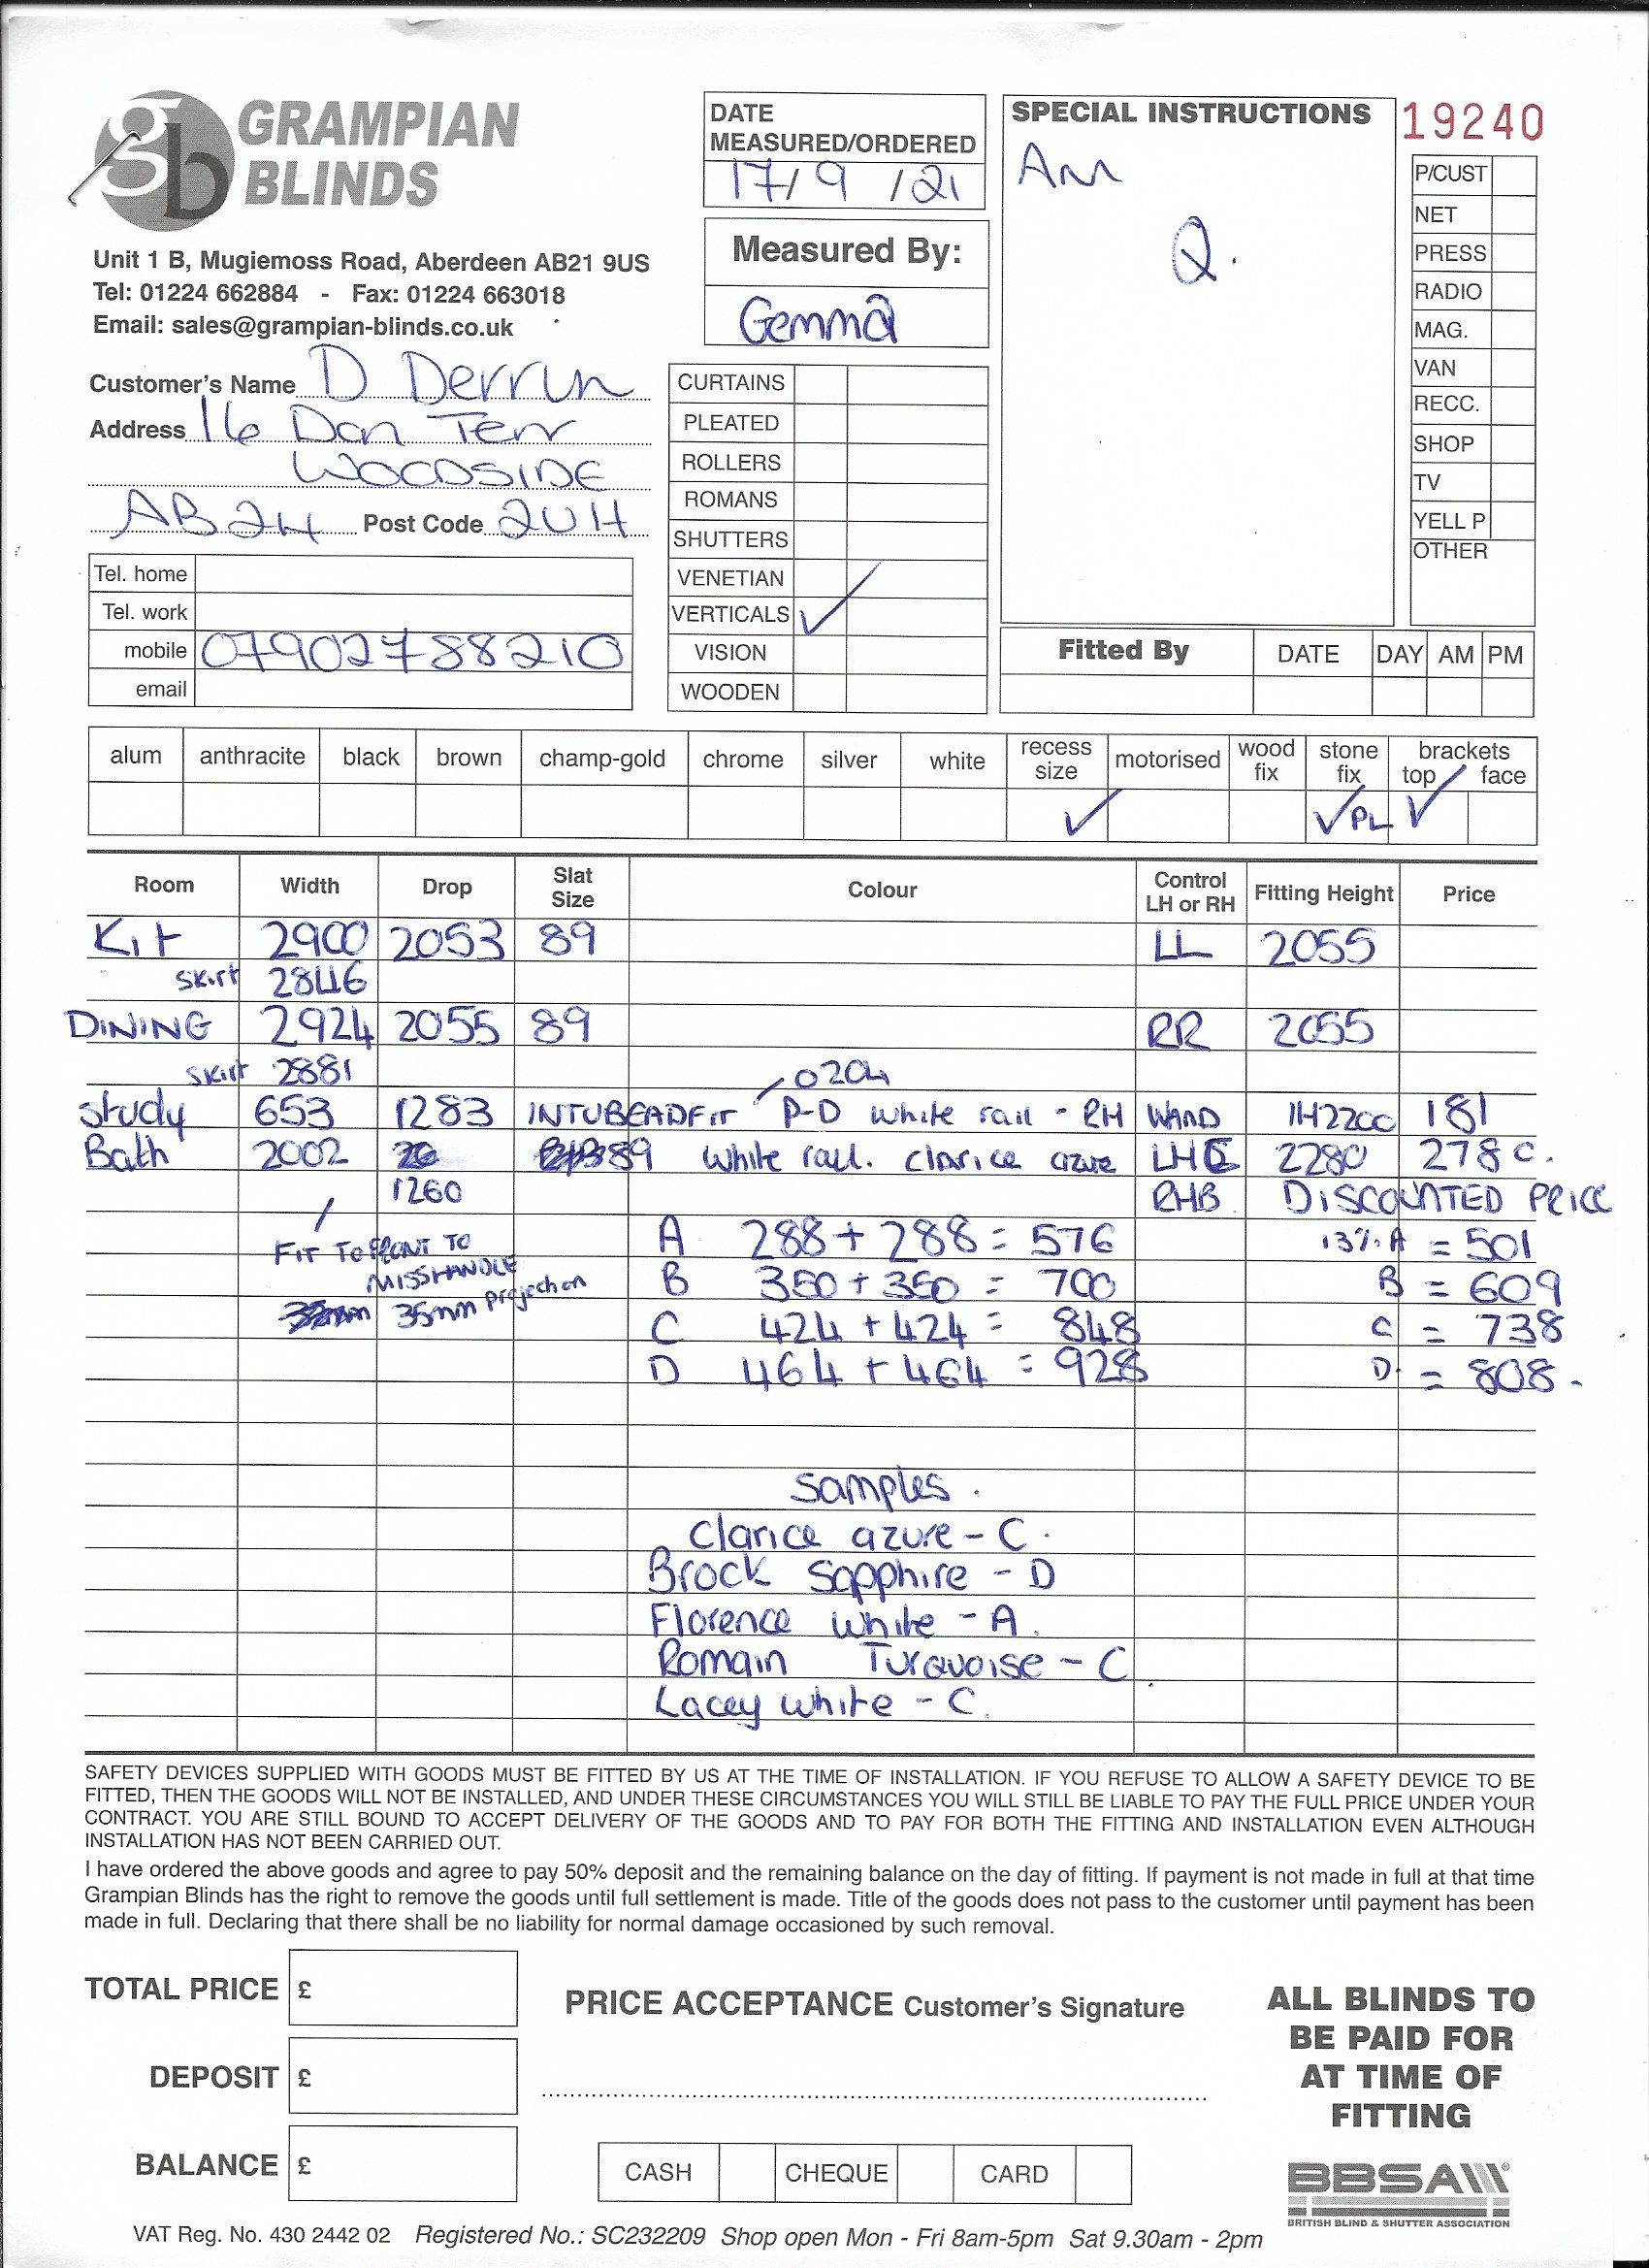 gb GRAMPIAN
BLINDS
Unit 1 B, Mugiemoss Road, Aberdeen AB21 9US
Tel: 01224 662884 - Fax: 01224 663018
Email: sales@grampian-blinds.co.uk
DATE
MEASURED/ORDERED
17/9/21
Measured By:
Gemma
SPECIAL INSTRUCTIONS
Am
Q.
19240
P/CUST
NET
PRESS
RADIO
MAG.
VAN
RECC.
SHOP
TV
YELL P
OTHER
Customer's Name D Derrun
Address 16 Don Terr
WOODSIDE
AB24 Post Code 2UH
Tel. home
Tel. work
mobile 07902788210
email
CURTAINS
PLEATED
ROLLERS
ROMANS
SHUTTERS
VENETIAN
VERTICALS ✓
VISION
WOODEN
Fitted By DATE DAY AM PM
alum anthracite black brown champ-gold chrome silver white recess size motorised wood fix stone fix brackets top face
✓ ✓PL ✓
Room Width Drop Slat Size Colour Control LH or RH Fitting Height Price
Kit 2900 2053 89 LL 2055
skirt 2846
DINING 2924 2055 89 RR 2055
skirt 2881
0204
study 653 1283 INTUBEADFIT P-D white rail - RH WAND 1H2200 181
Bath 2002 89 white rail. clarice azure LHC 2280 278 C.
1260 RHB DISCOUNTED PRICE
FIT TO FRONT TO A 288 + 288 = 576 13% A = 501
MISSHANDLE B 350 + 350 = 700 B = 609
35mm projection C 424 + 424 = 848 C = 738
D 464 + 464 = 928 D. = 808.
Samples.
Clarice azure - C.
Brock Sapphire - D
Florence white - A.
Romain Turquoise - C
Lacey white - C.
SAFETY DEVICES SUPPLIED WITH GOODS MUST BE FITTED BY US AT THE TIME OF INSTALLATION. IF YOU REFUSE TO ALLOW A SAFETY DEVICE TO BE
FITTED, THEN THE GOODS WILL NOT BE INSTALLED, AND UNDER THESE CIRCUMSTANCES YOU WILL STILL BE LIABLE TO PAY THE FULL PRICE UNDER YOUR
CONTRACT. YOU ARE STILL BOUND TO ACCEPT DELIVERY OF THE GOODS AND TO PAY FOR BOTH THE FITTING AND INSTALLATION EVEN ALTHOUGH
INSTALLATION HAS NOT BEEN CARRIED OUT.
I have ordered the above goods and agree to pay 50% deposit and the remaining balance on the day of fitting. If payment is not made in full at that time
Grampian Blinds has the right to remove the goods until full settlement is made. Title of the goods does not pass to the customer until payment has been
made in full. Declaring that there shall be no liability for normal damage occasioned by such removal.
TOTAL PRICE £
DEPOSIT £
BALANCE £
PRICE ACCEPTANCE Customer's Signature
CASH CHEQUE CARD
ALL BLINDS TO
BE PAID FOR
AT TIME OF
FITTING
BBSA
BRITISH BLIND & SHUTTER ASSOCIATION
VAT Reg. No. 430 2442 02 Registered No.: SC232209 Shop open Mon - Fri 8am-5pm Sat 9.30am - 2pm